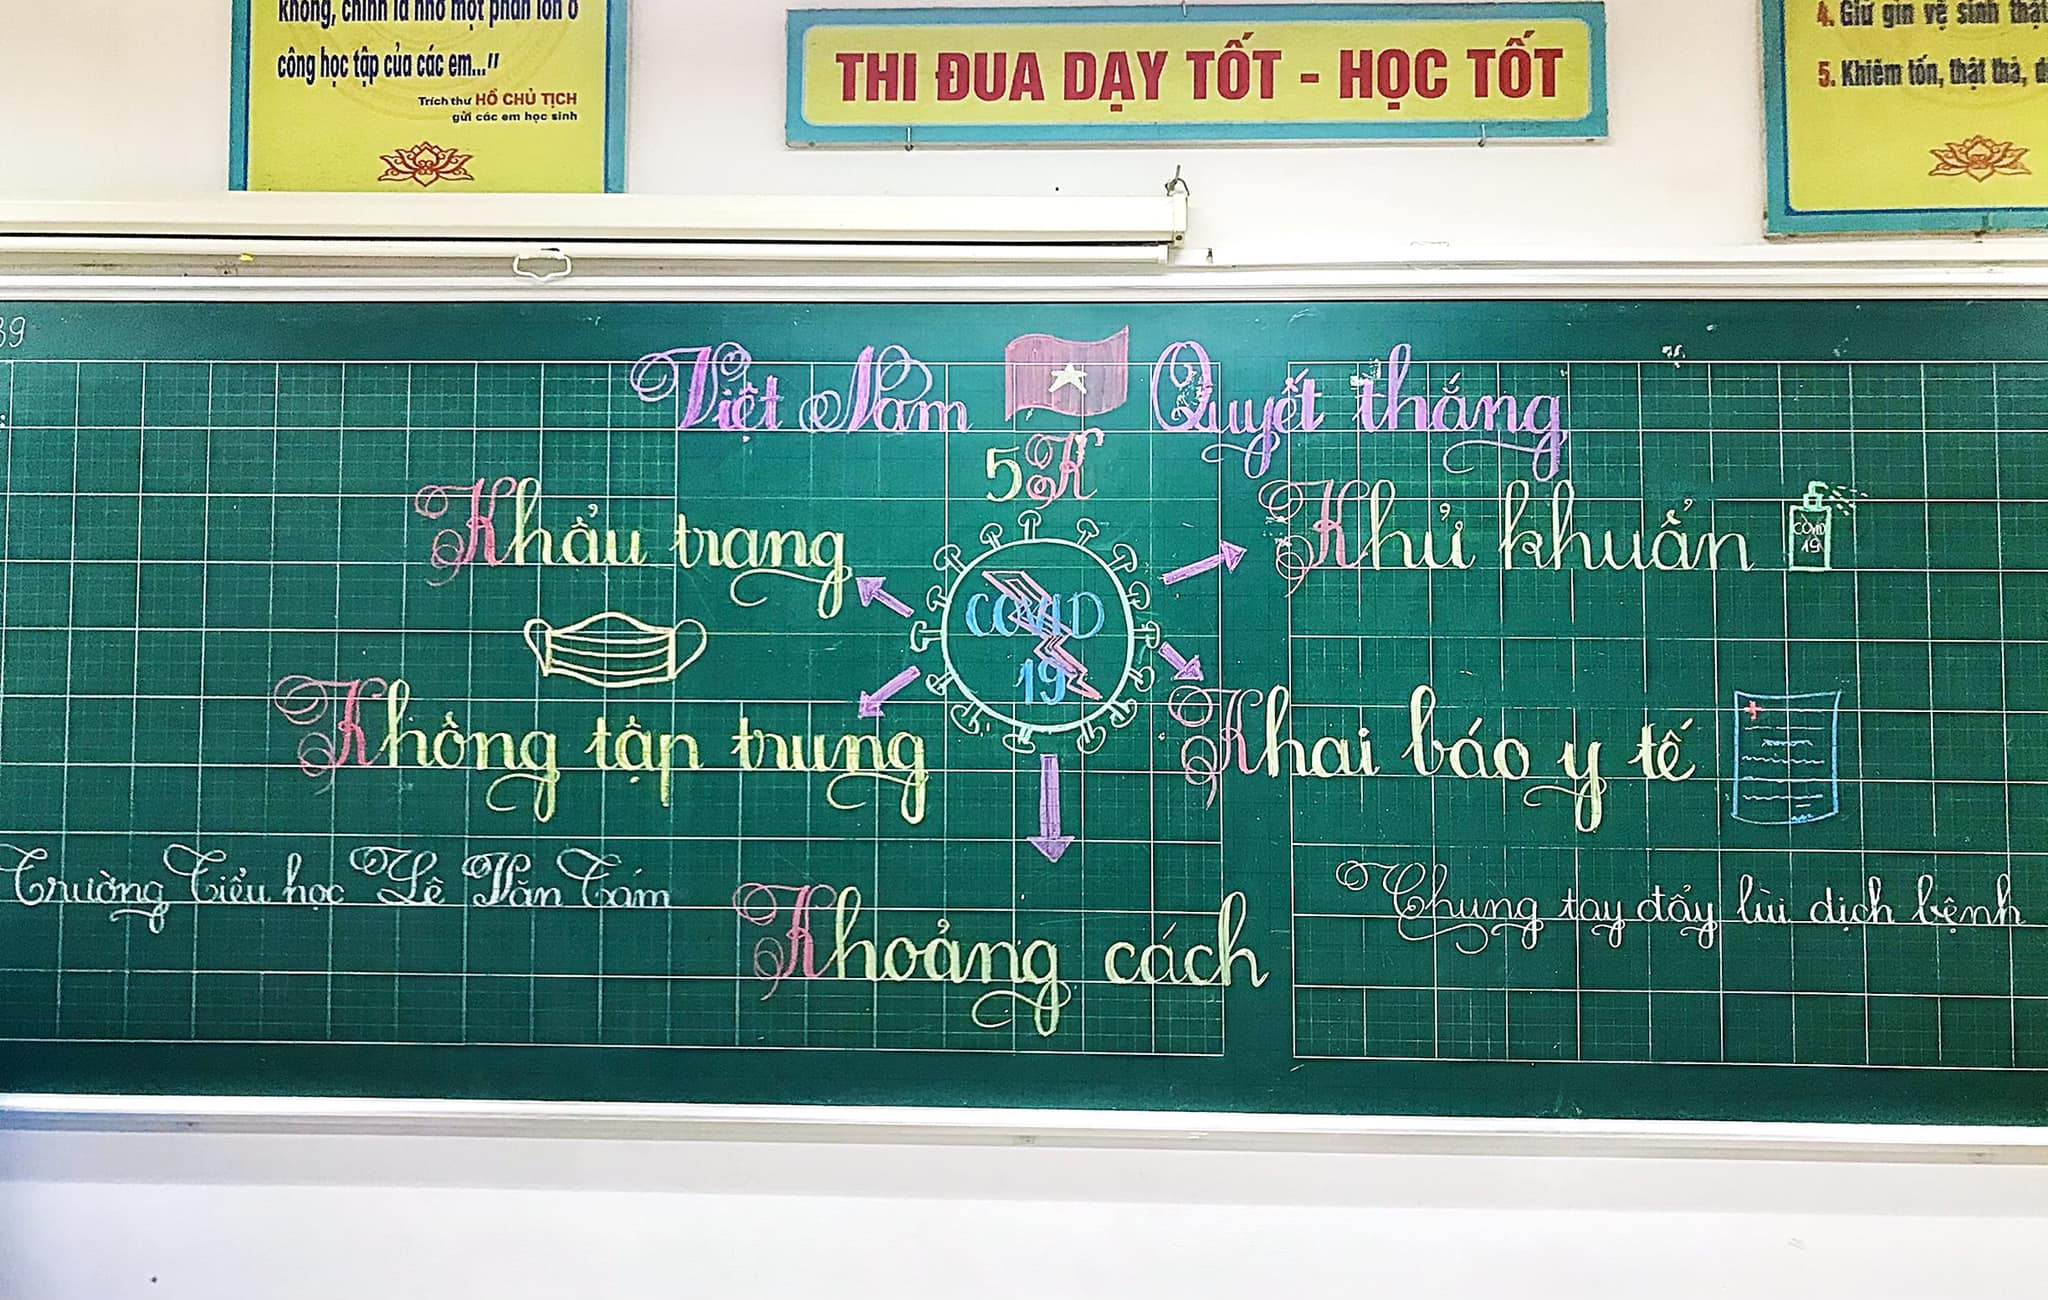 không, chính là nhờ một phần lớn ở
công học tập của các em..."
Trích thư HỒ CHỦ TỊCH
gửi các em học sinh
THI ĐUA DẠY TỐT - HỌC TỐT
4. Giữ gìn vệ sinh thật
5. Khiêm tốn, thật thà,
39
Việt Nam Quyết thắng
5K
Khẩu trang
Khử khuẩn
COVID
19
COVID
19
Không tập trung
Khai báo y tế
Trường Tiểu học Lê Văn Tám
Chung tay đẩy lùi dịch bệnh
Khoảng cách